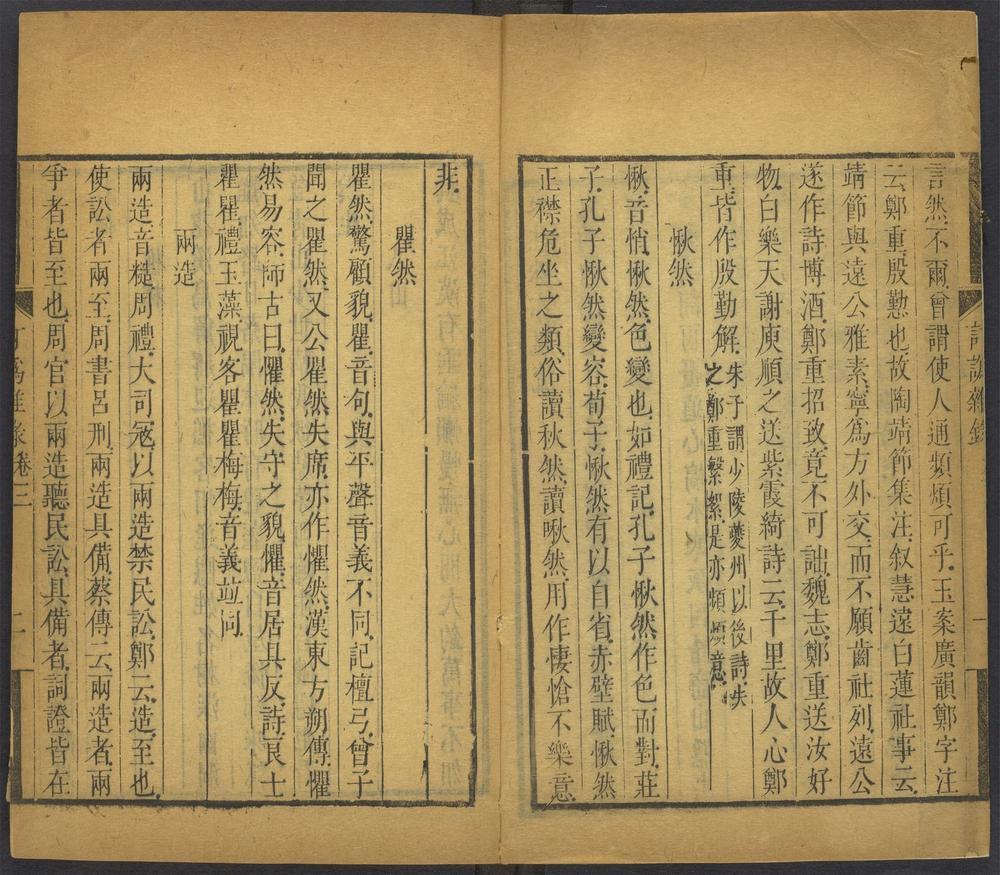 言然不爾曾謂使人通頻煩可乎玉案廣韻鄭字注
云鄭重殷懃也故陶靖節集注叙慧遠白蓮社事云
靖節與遠公雅素寧為方外交而不願齒社列遠公
遂作詩博酒鄭重招致竟不可詘魏志鄭重送汝好
物白樂天謝庾順之送紫霞綺詩云千里故人心鄭
重皆作殷勤解朱子謂少陵夔州以後詩失
之鄭重繁絮是亦頻煩意
愀然
愀音悄愀然色變也如禮記孔子愀然作色而對莊
子孔子愀然變容荀子愀然有以自省赤壁賦愀然
正襟危坐之類俗讀秋然讀啾然用作悽愴不樂意
非
瞿然
瞿然驚顧貌瞿音句與平聲音義不同記檀弓曾子
聞之瞿然又公瞿然失席亦作懼然漢東方朔傳懼
然易容師古曰懼然失守之貌懼音居具反詩良士
瞿瞿禮玉藻視容瞿瞿梅梅音義竝同
兩造
兩造音糙周禮大司冦以兩造禁民訟鄭云造至也
使訟者兩至周書呂刑兩造具備蔡傳云兩造者兩
爭者皆至也周官以兩造聽民訟具備者詞證皆在
卷三
二